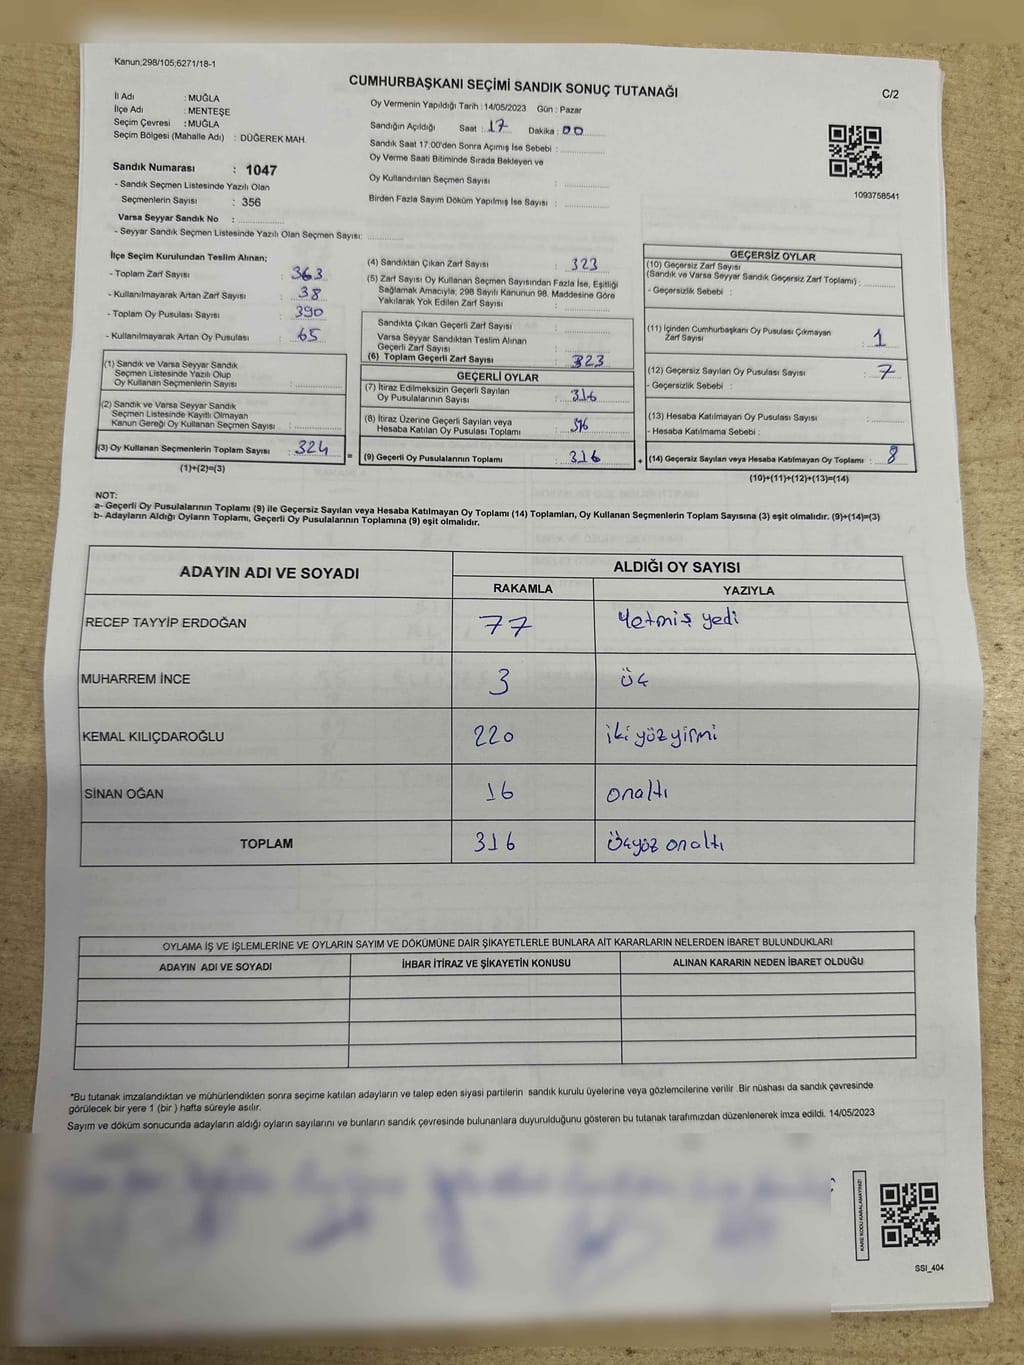 Kanun;298/105;6271/18-1
CUMHURBAŞKANI SEÇİMİ SANDIK SONUÇ TUTANAĞI
C/2
İl Adı : MUĞLA
İlçe Adı : MENTEŞE
Seçim Çevresi : MUĞLA
Seçim Bölgesi (Mahalle Adı) : DÜĞEREK MAH.
Sandık Numarası : 1047
- Sandık Seçmen Listesinde Yazılı Olan
Seçmenlerin Sayısı : 356
Varsa Seyyar Sandık No :
- Seyyar Sandık Seçmen Listesinde Yazılı Olan Seçmen Sayısı:
Oy Vermenin Yapıldığı Tarih : 14/05/2023 Gün : Pazar
Sandığın Açıldığı Saat : 17 Dakika : 00
Sandık Saat 17:00'den Sonra Açımış İse Sebebi :
Oy Verme Saati Bitiminde Sırada Bekleyen ve
Oy Kullandırılan Seçmen Sayısı :
Birden Fazla Sayım Döküm Yapılmış İse Sayısı :
1093758541
İlçe Seçim Kurulundan Teslim Alınan;
- Toplam Zarf Sayısı : 363
- Kullanılmayarak Artan Zarf Sayısı : 38
- Toplam Oy Pusulası Sayısı : 390
- Kullanılmayarak Artan Oy Pusulası : 65
(1) Sandık ve Varsa Seyyar Sandık
Seçmen Listesinde Yazılı Olup
Oy Kullanan Seçmenlerin Sayısı :
(2) Sandık ve Varsa Seyyar Sandık
Seçmen Listesinde Kayıtlı Olmayan
Kanun Gereği Oy Kullanan Seçmen Sayısı :
(3) Oy Kullanan Seçmenlerin Toplam Sayısı : 324
(1)+(2)=(3)
(4) Sandıktan Çıkan Zarf Sayısı : 323
(5) Zarf Sayısı Oy Kullanan Seçmen Sayısından Fazla İse, Eşitliği
Sağlamak Amacıyla; 298 Sayılı Kanunun 98. Maddesine Göre
Yakılarak Yok Edilen Zarf Sayısı :
Sandıkta Çıkan Geçerli Zarf Sayısı :
Varsa Seyyar Sandıktan Teslim Alınan
Geçerli Zarf Sayısı :
(6) Toplam Geçerli Zarf Sayısı : 323
GEÇERLİ OYLAR
(7) İtiraz Edilmeksizin Geçerli Sayılan
Oy Pusulalarının Sayısı : 316
(8) İtiraz Üzerine Geçerli Sayılan veya
Hesaba Katılan Oy Pusulası Toplamı : 316
= (9) Geçerli Oy Pusulalarının Toplamı : 316
GEÇERSİZ OYLAR
(10) Geçersiz Zarf Sayısı
(Sandık ve Varsa Seyyar Sandık Geçersiz Zarf Toplamı) :
- Geçersizlik Sebebi :
(11) İçinden Cumhurbaşkanı Oy Pusulası Çıkmayan
Zarf Sayısı : 1
(12) Geçersiz Sayılan Oy Pusulası Sayısı : 7
- Geçersizlik Sebebi :
(13) Hesaba Katılmayan Oy Pusulası Sayısı :
- Hesaba Katılmama Sebebi :
+ (14) Geçersiz Sayılan veya Hesaba Katılmayan Oy Toplamı : 8
(10)+(11)+(12)+(13)=(14)
NOT:
a- Geçerli Oy Pusulalarının Toplamı (9) ile Geçersiz Sayılan veya Hesaba Katılmayan Oy Toplamı (14) Toplamları, Oy Kullanan Seçmenlerin Toplam Sayısına (3) eşit olmalıdır. (9)+(14)=(3)
b- Adayların Aldığı Oyların Toplamı, Geçerli Oy Pusulalarının Toplamına (9) eşit olmalıdır.
ADAYIN ADI VE SOYADI ALDIĞI OY SAYISI
RAKAMLA YAZIYLA
RECEP TAYYİP ERDOĞAN 77 Yetmiş yedi
MUHARREM İNCE 3 üç
KEMAL KILIÇDAROĞLU 220 iki yüz yirmi
SİNAN OĞAN 16 onaltı
TOPLAM 316 Üçyüz onaltı
OYLAMA İŞ VE İŞLEMLERİNE VE OYLARIN SAYIM VE DÖKÜMÜNE DAİR ŞİKAYETLERLE BUNLARA AİT KARARLARIN NELERDEN İBARET BULUNDUKLARI
ADAYIN ADI VE SOYADI İHBAR İTİRAZ VE ŞİKAYETİN KONUSU ALINAN KARARIN NEDEN İBARET OLDUĞU
*Bu tutanak imzalandıktan ve mühürlendikten sonra seçime katılan adayların ve talep eden siyasi partilerin sandık kurulu üyelerine veya gözlemcilerine verilir .Bir nüshası da sandık çevresinde
görülecek bir yere 1 (bir ) hafta süreyle asılır.
Sayım ve döküm sonucunda adayların aldığı oyların sayılarını ve bunların sandık çevresinde bulunanlara duyurulduğunu gösteren bu tutanak tarafımızdan düzenlenerek imza edildi. 14/05/2023
KARE KODU KARALAMAYINIZ!
SSI_404